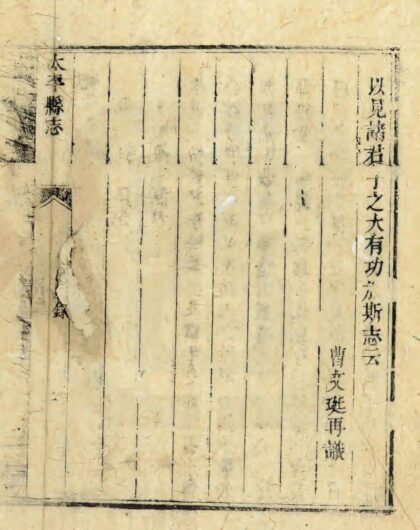 以見諸君子之大有功於斯志云
曹文珽再識
太平縣志
錄